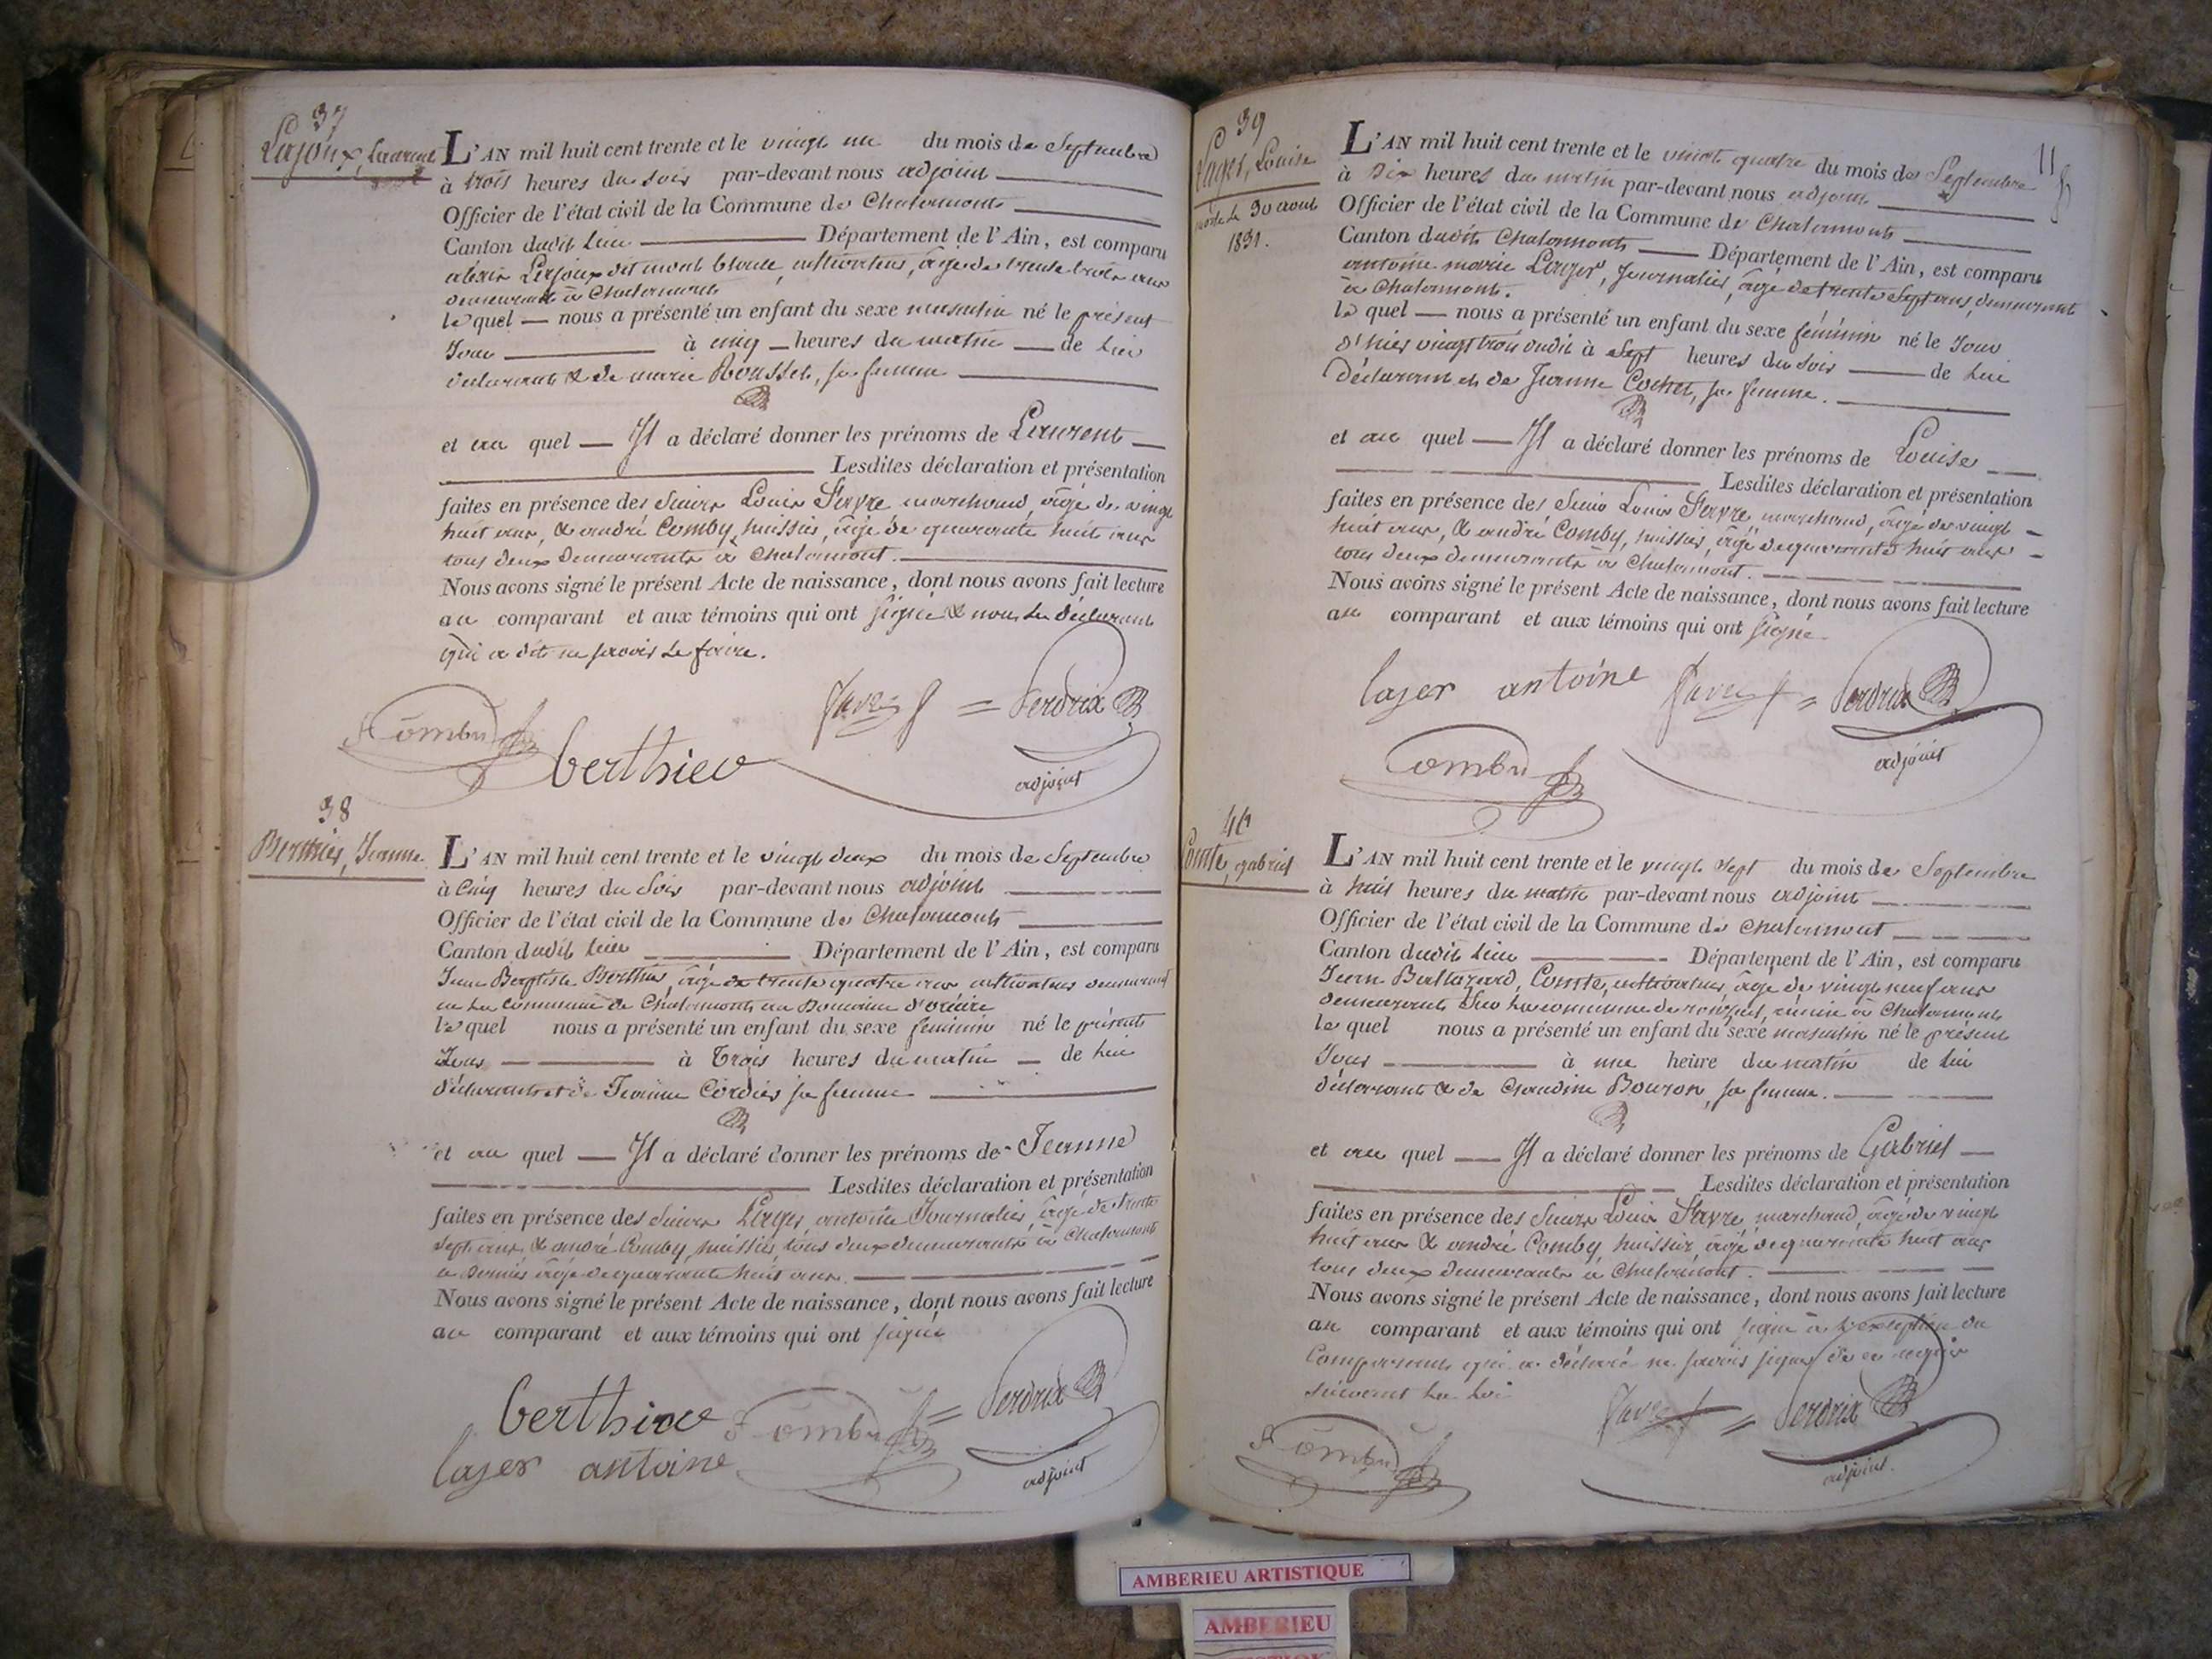 37
Lajoux, Laurent
L'AN mil huit cent trente et le vingt un du mois de Septembre
à trois heures du soir par-devant nous adjoint
Officier de l'état civil de la Commune de Chalamont
Canton dudit lieu Département de l'Ain, est comparu
Lajoux dit mont blanc, cultivateur, âgé de trente trois ans
demeurant à Chalamont
le quel nous a présenté un enfant du sexe masculin né le présent
Jour à cinq heures du matin de lui
déclarant & de marie Rousset, sa femme
et au quel Il a déclaré donner les prénoms de Laurent
Lesdites déclaration et présentation
faites en présence des Sieurs Louis Favre marchand, âgé de vingt
huit ans, & andré Comby, huissier, âgé de quarante huit ans
tous deux demeurants à Chalamont.
Nous avons signé le présent Acte de naissance, dont nous avons fait lecture
au comparant et aux témoins qui ont signé & non le déclarant
qui a dit ne savoir le faire.
Favre = Perdrix
Comby
berthier
adjoint
38
Berthier, Jeanne
L'AN mil huit cent trente et le vingt deux du mois de Septembre
à Cinq heures du Soir par-devant nous adjoint
Officier de l'état civil de la Commune de Chalamont
Canton dudit lieu Département de l'Ain, est comparu
Jean Baptiste Berthier, âgé de trente quatre ans cultivateur demeurant
en la commune de Chalamont au Domaine
le quel nous a présenté un enfant du sexe feminin né le présent
Jour à Trois heures du matin de lui
déclarant et de Jeanne Cordier sa femme
et au quel Il a déclaré donner les prénoms de Jeanne
Lesdites déclaration et présentation
faites en présence des Sieurs Lager antoine Journalier, âgé de trente
sept ans & andré Comby, huissier, tous deux demeurants à Chalamont
le dernier âgé de quarante huit ans.
Nous avons signé le présent Acte de naissance, dont nous avons fait lecture
au comparant et aux témoins qui ont signé
berthier Comby = Perdrix
lager antoine
adjoint
11
39
Lager, Louise
morte le 30 aout
1831.
L'AN mil huit cent trente et le vingt quatre du mois de Septembre
à Dix heures du matin par-devant nous adjoint
Officier de l'état civil de la Commune de Chalamont
Canton dudit Chalamont Département de l'Ain, est comparu
antoine marie Lager, Journalier, âgé de trente Sept ans, demeurant
à Chalamont.
le quel nous a présenté un enfant du sexe féminin né le Jour
d'hier vingt trois dudit à Sept heures du soir de lui
déclarant et de Jeanne Cochet, sa femme.
et au quel Il a déclaré donner les prénoms de Louise
Lesdites déclaration et présentation
faites en présence des Sieurs Louis Favre marchand, âgé de vingt
huit ans, & andré Comby, huissier, âgé de quarante huit ans
tous deux demeurants à Chalamont.
Nous avons signé le présent Acte de naissance, dont nous avons fait lecture
au comparant et aux témoins qui ont signé
lager antoine Favre = Perdrix
Comby
adjoint
40
Comte, gabriel
L'AN mil huit cent trente et le vingt Sept du mois de Septembre
à huit heures du matin par-devant nous adjoint
Officier de l'état civil de la Commune de Chalamont
Canton dudit lieu Département de l'Ain, est comparu
Jean Baltazard, Comte, cultivateur, âgé de vingt neuf ans
demeurant Sur la commune de réunie à Chalamont
le quel nous a présenté un enfant du sexe masculin né le présent
Jour à une heure du matin de lui
déclarant & de Claudine Bouron, sa femme.
et au quel Il a déclaré donner les prénoms de Gabriel
Lesdites déclaration et présentation
faites en présence des Sieurs Louis Favre marchand, âgé de vingt
huit ans & andré Comby huissier, âgé de quarante huit ans
tous deux demeurants à Chalamont.
Nous avons signé le présent Acte de naissance, dont nous avons fait lecture
au comparant et aux témoins qui ont signé à l'exception du
Comparant qui a déclaré ne savoir signer de ce requis
suivant la loi
Favre = Perdrix
Comby
adjoint.
AMBERIEU ARTISTIQUE
AMBERIEU